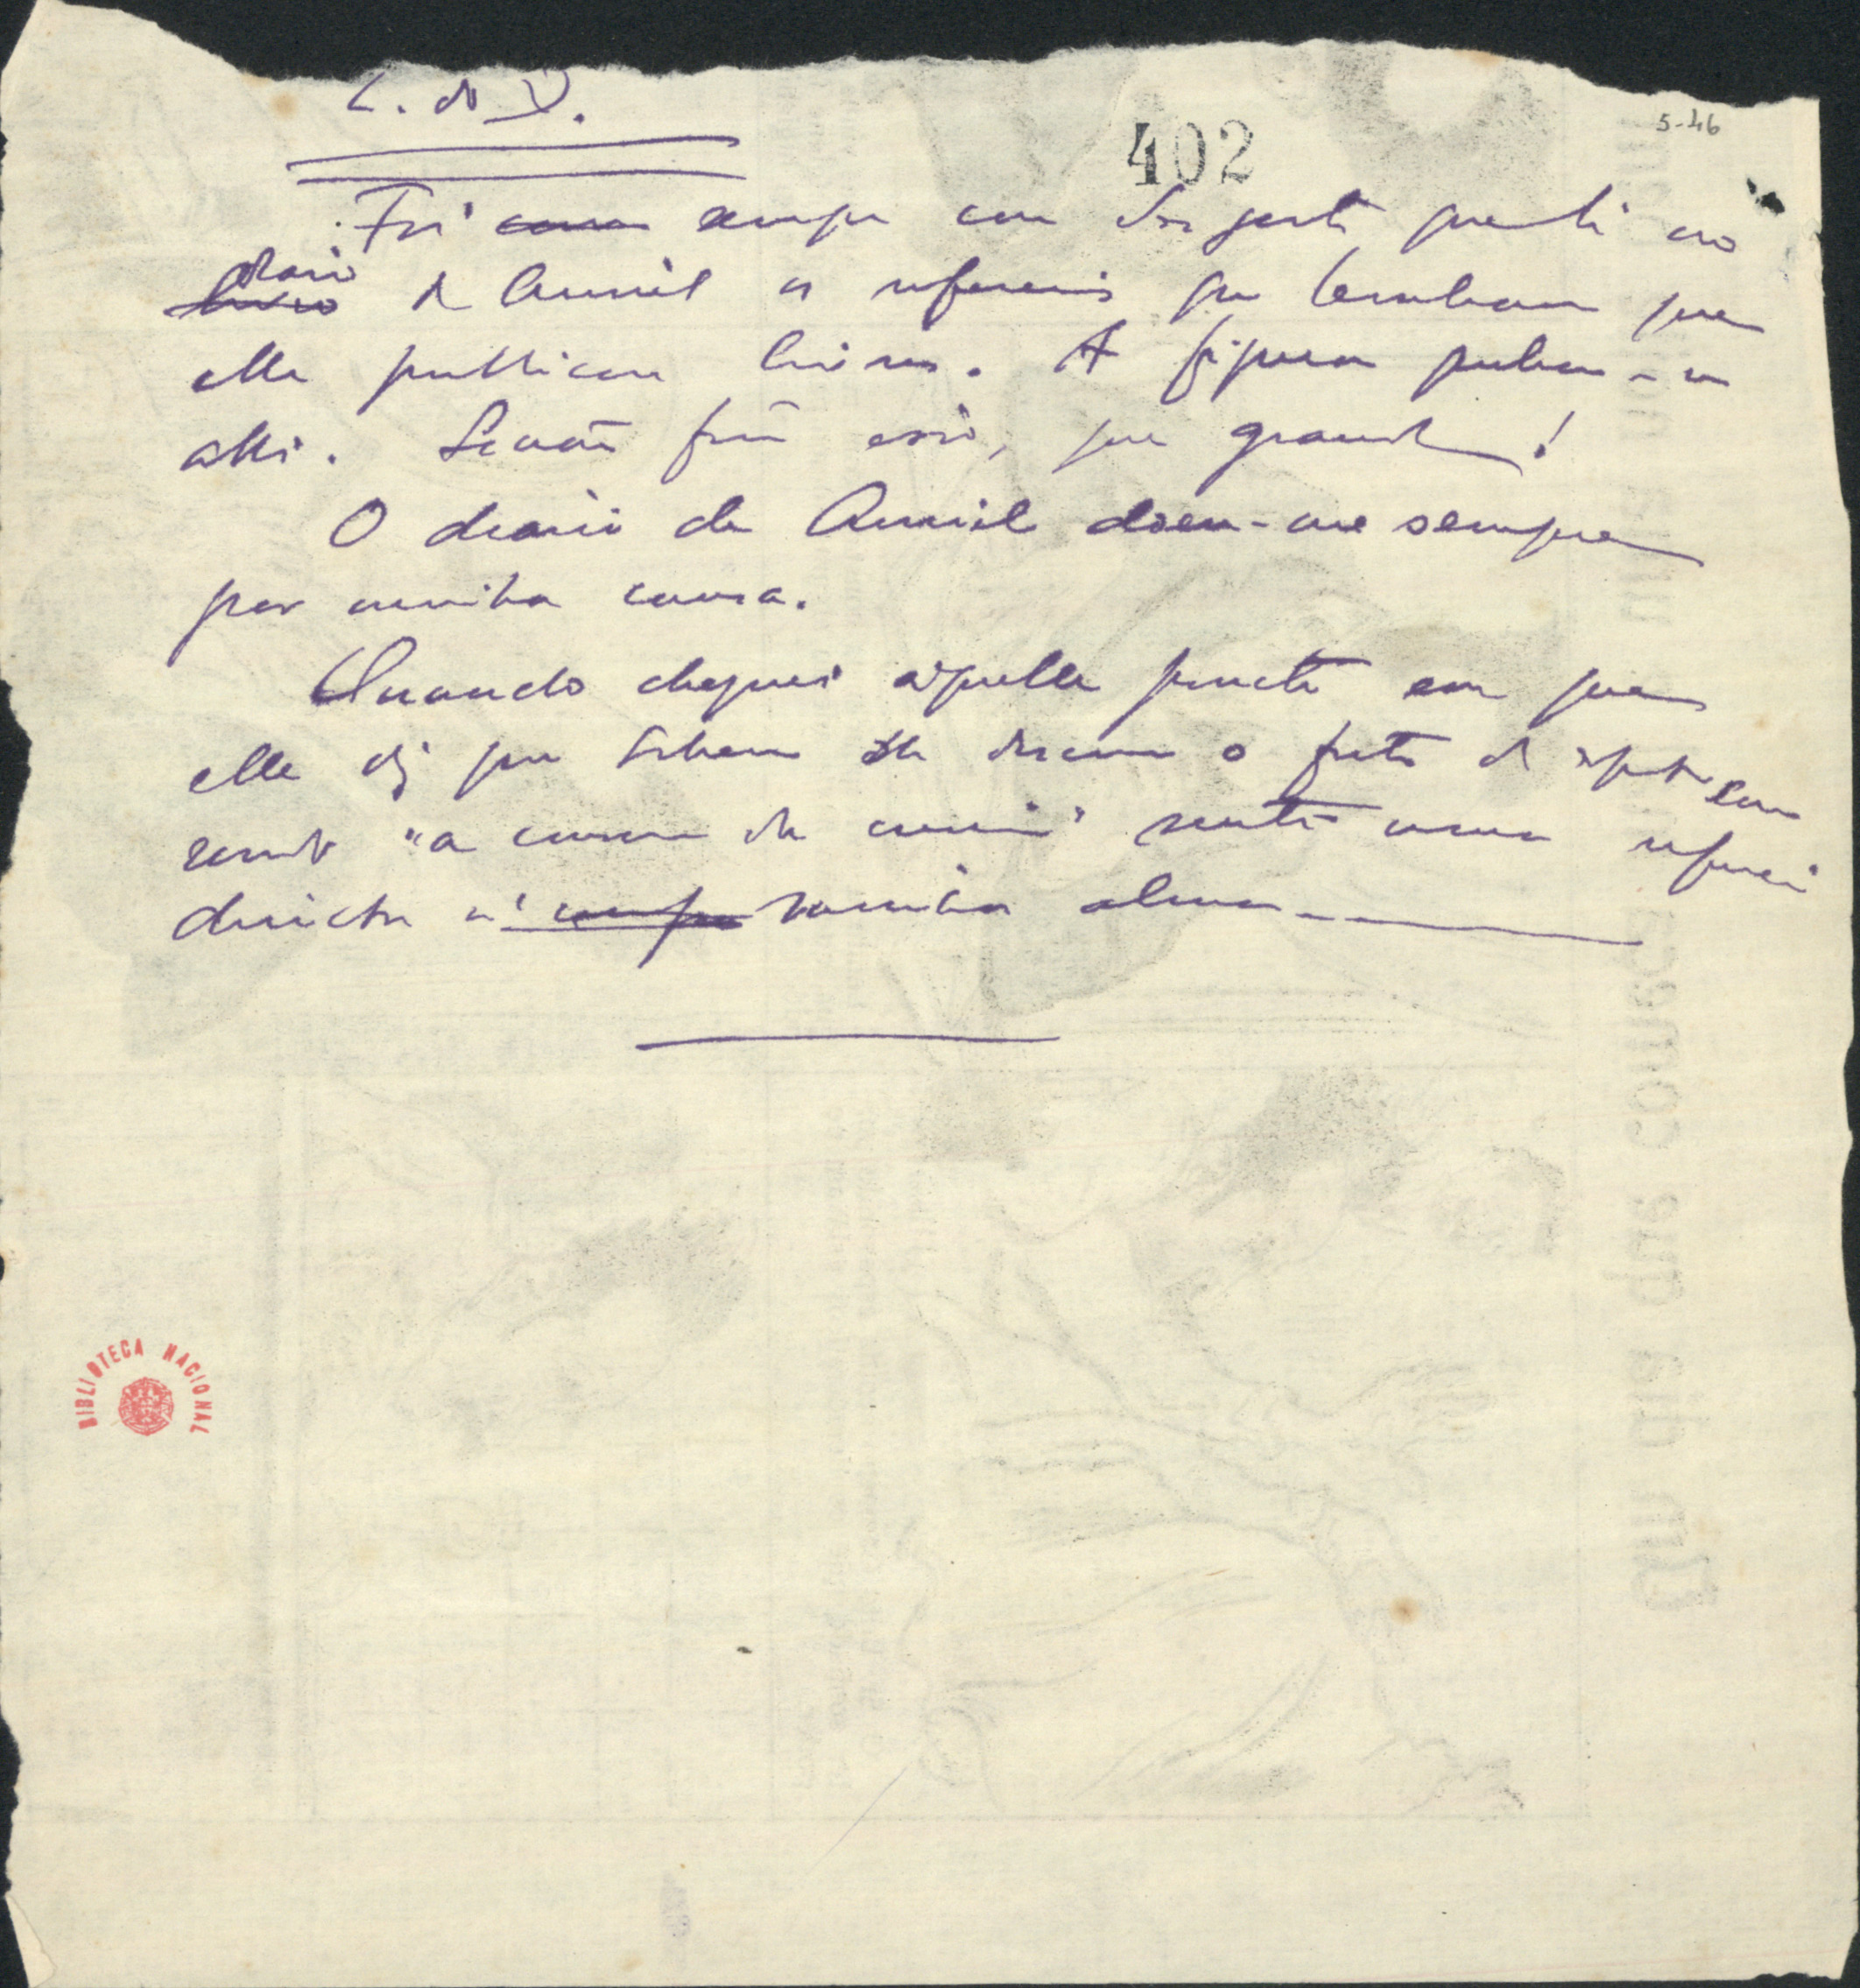 L. do D.
402
5-46
Foi com sempre com desgosto que li no
diario
livro de Amiel as referencias que lembram que
elle publicou livros. A figura quebra-se
alli. Se não fôra isso, que grande!
O diario de Amiel doeu-me sempre
por minha causa.
Quando cheguei áquelle ponto em que
elle diz que Scherer lhe descreveu o fructo do espirito como
sendo "a consciencia da consciencia" senti uma referencia
directa á minha alma
BIBLIOTECA NACIONAL